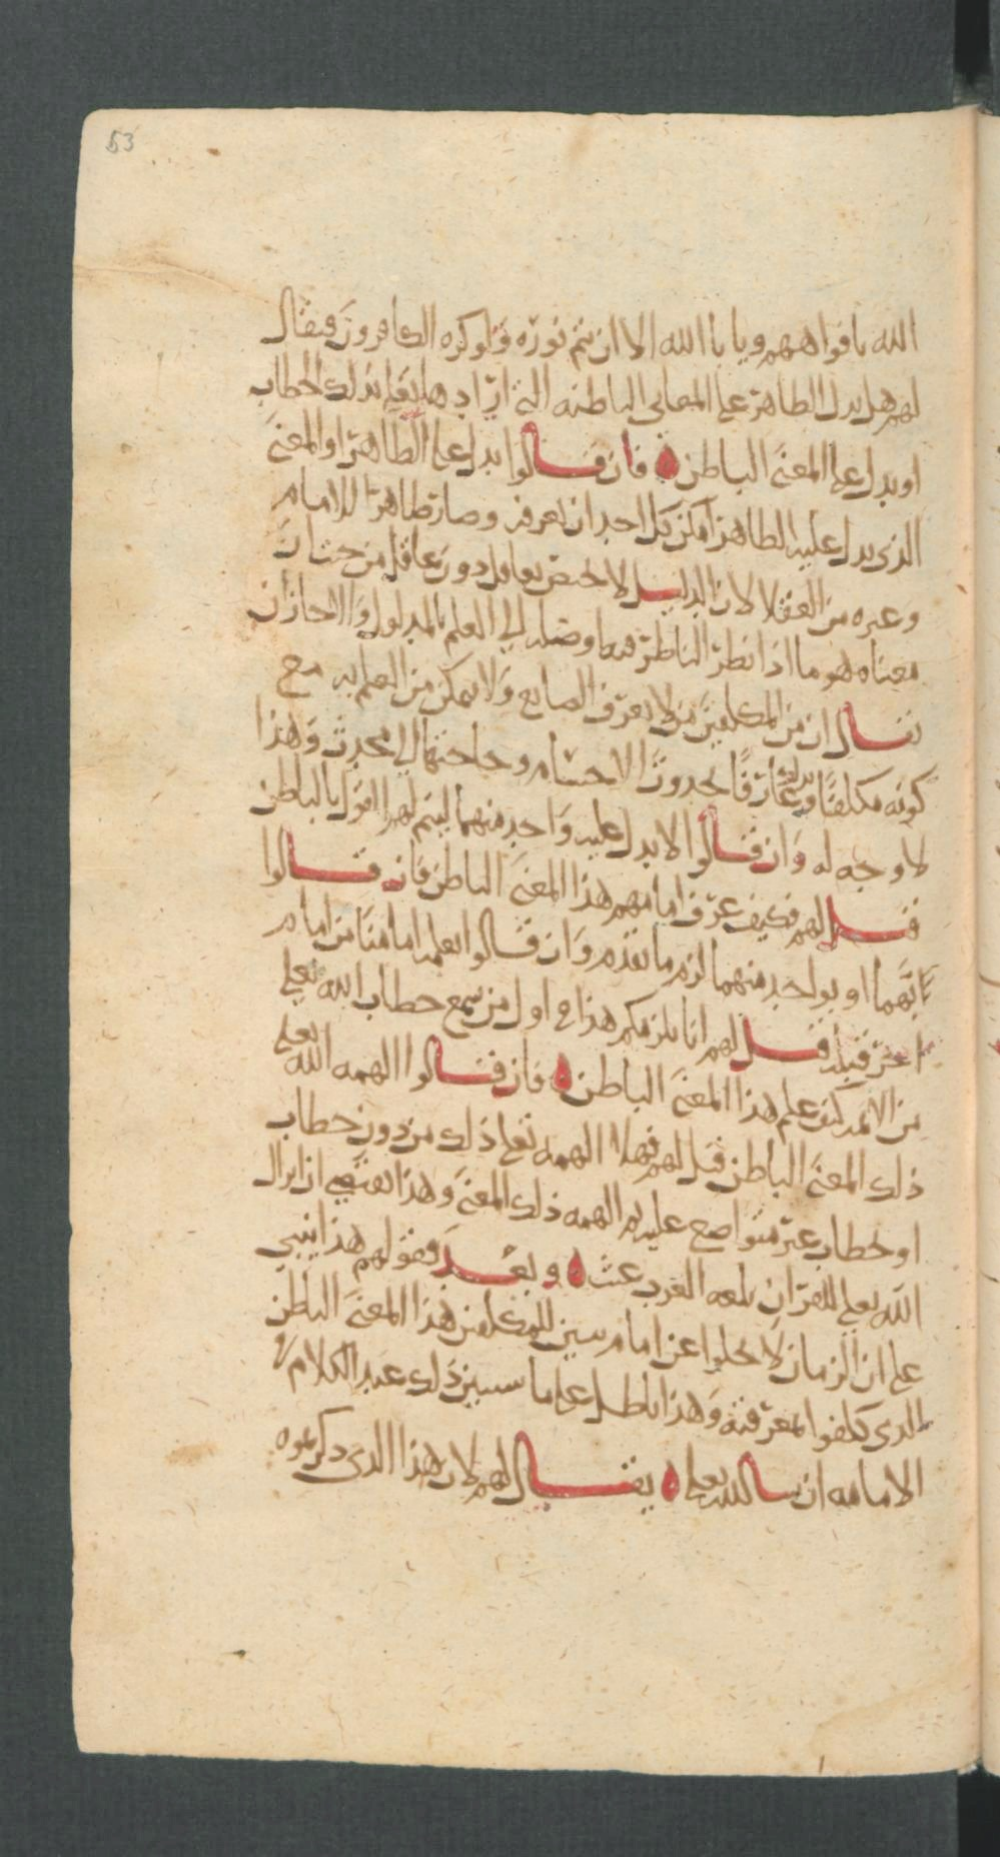 53
الله بافواههم ويابا الله الا ان يتم نوره ولو كره الكافرون فيقال
لهم هل يدل الظاهر على المعاني الباطنه التي اراد بها تعلى بذلك الخطاب
او يدل على المعنى الباطن ه فان قالوا يدل على الظاهر او المعنى
الذي يدل عليه الظاهر امكن كل احد ان يعرفه وصار ظاهرا للامام
وغيره من العقلا لان الدليل لا يختص بعاقل دون عاقل من حيث ان
معناه هو ما اذا نظر الناظر فيه اوصله الى العلم بالمدلول والا جاز ان
يقال ان من المكلفين من لا يعرف الصانع ولا يمكن من العلم به مع
كونه مكلفا بذلك وعارفا بحدوث الاجسام وحاجتها الى محدث وهذا
لا وجه له وان قالوا لا يدل عليه واحد منهما ليتم لهم القول بالباطن
قيل لهم فكيف عرف امامهم هذا المعنى الباطن فان قالوا
بهما او بواحد منهما لزم ما تقدم وان قالوا تعلمه امامنا من امام
اخر قبله قيل لهم انا نلزمكم هذا في اول من سمع خطاب الله تعلى
من الائمه كيف علم هذا المعنى الباطن ه فان قالوا الهمه الله تعلى
ذلك المعنى الباطن قيل لهم فهلا الهمه تعلى ذلك من دون خطاب
او خطاب غير متواضع عليه ثم الهمه ذلك المعنى وهذا يقتضي ان انزال
الله تعلى للقران بلغه العرب عبث ه وبعد فقولهم هذا ينبني
على ان الزمان لا يخلوا عن امام يبين للمكلفين هذا المعنى الباطن
الذي كلفوا معرفته وهذا باطل على ما سنبين ذلك عند الكلام في
الامامه ان شا الله تعلى ه يقال لهم لان هذا الذي ذكرتموه